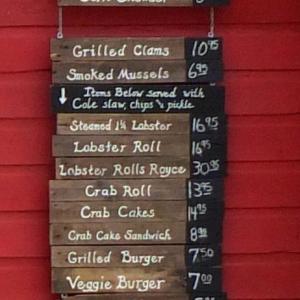 Grilled Clams 10.95
Smoked Mussels 6.95
↓ Items Below served with
Cole slaw, chips & pickle
Steamed 1¼ Lobster 16.95
Lobster Roll 16.95
Lobster Rolls Royce 30.95
Crab Roll 13.95
Crab Cakes 14.95
Crab Cake Sandwich 8.95
Grilled Burger 7.50
Veggie Burger 7.00